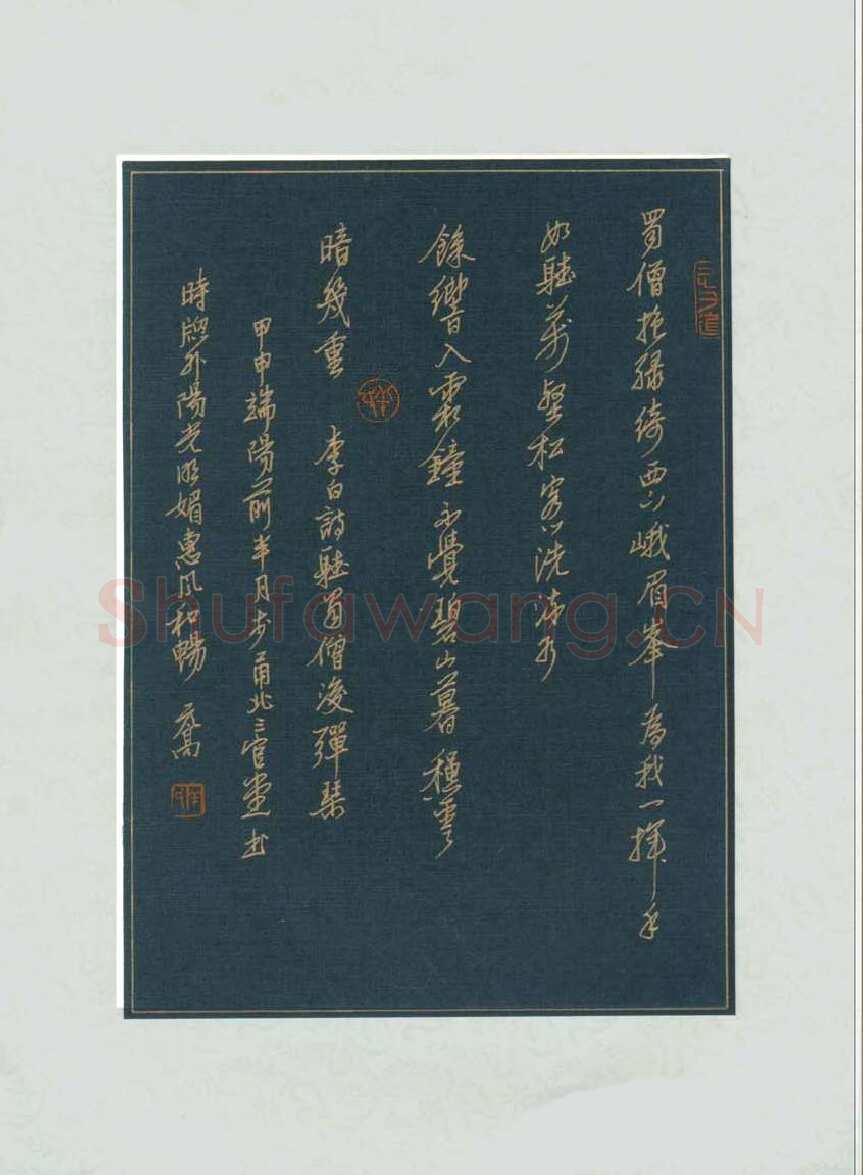 蜀僧抱綠綺西下峨眉峯為我一揮手
如聽萬壑松客心洗流水
餘響入霜鐘不覺碧山暮穐雲
暗幾重 李白詩聽蜀僧浚彈琴
甲申端陽前半月於甬北三官堂書
時牕外陽光明媚惠風和暢
Shufawang.CN